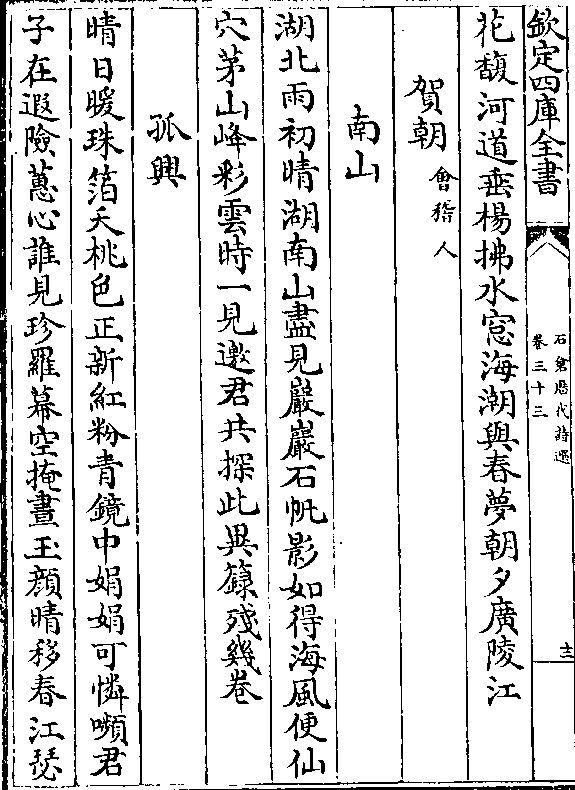 欽定四庫全書
石倉歷代詩選
卷三十三
十二
花馥河道垂楊拂水窓海潮與春夢朝夕廣陵江
賀朝會稽人
南山
湖北雨初晴湖南山盡見巖巖石帆影如得海風便仙
穴茅山峰彩雲時一見邀君共探此異籙殘幾卷
孤興
晴日暖珠箔夭桃色正新紅粉青鏡中娟娟可憐嚬君
子在遐險蕙心誰見珍羅幕空掩晝玉顔晴移春江瑟